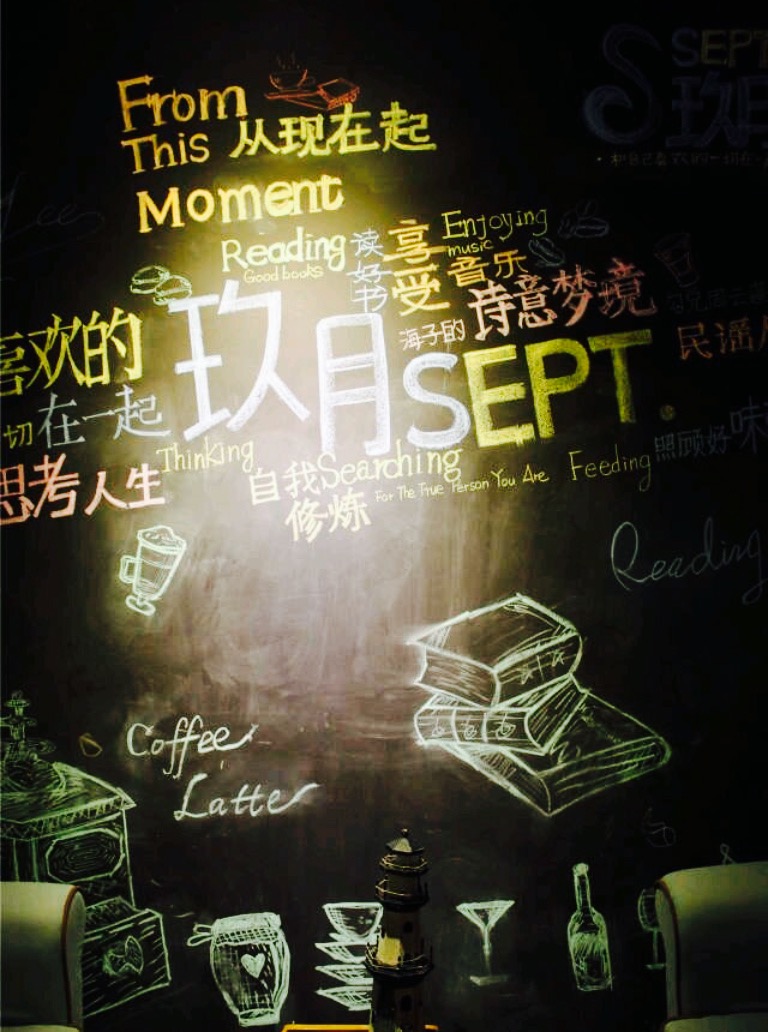 From
This 从现在起
Moment
SEPT
玖月
Reading 读好书
Good books
享受
Enjoying
music
音乐
海子的 诗意梦境
喜欢的
切 在一起
玖月 SEPT.
民谣
思考人生
Thinking
自我 Searching
修炼
For The True Person You Are
Feeding 照顾好味
Reading
Coffee
Latte